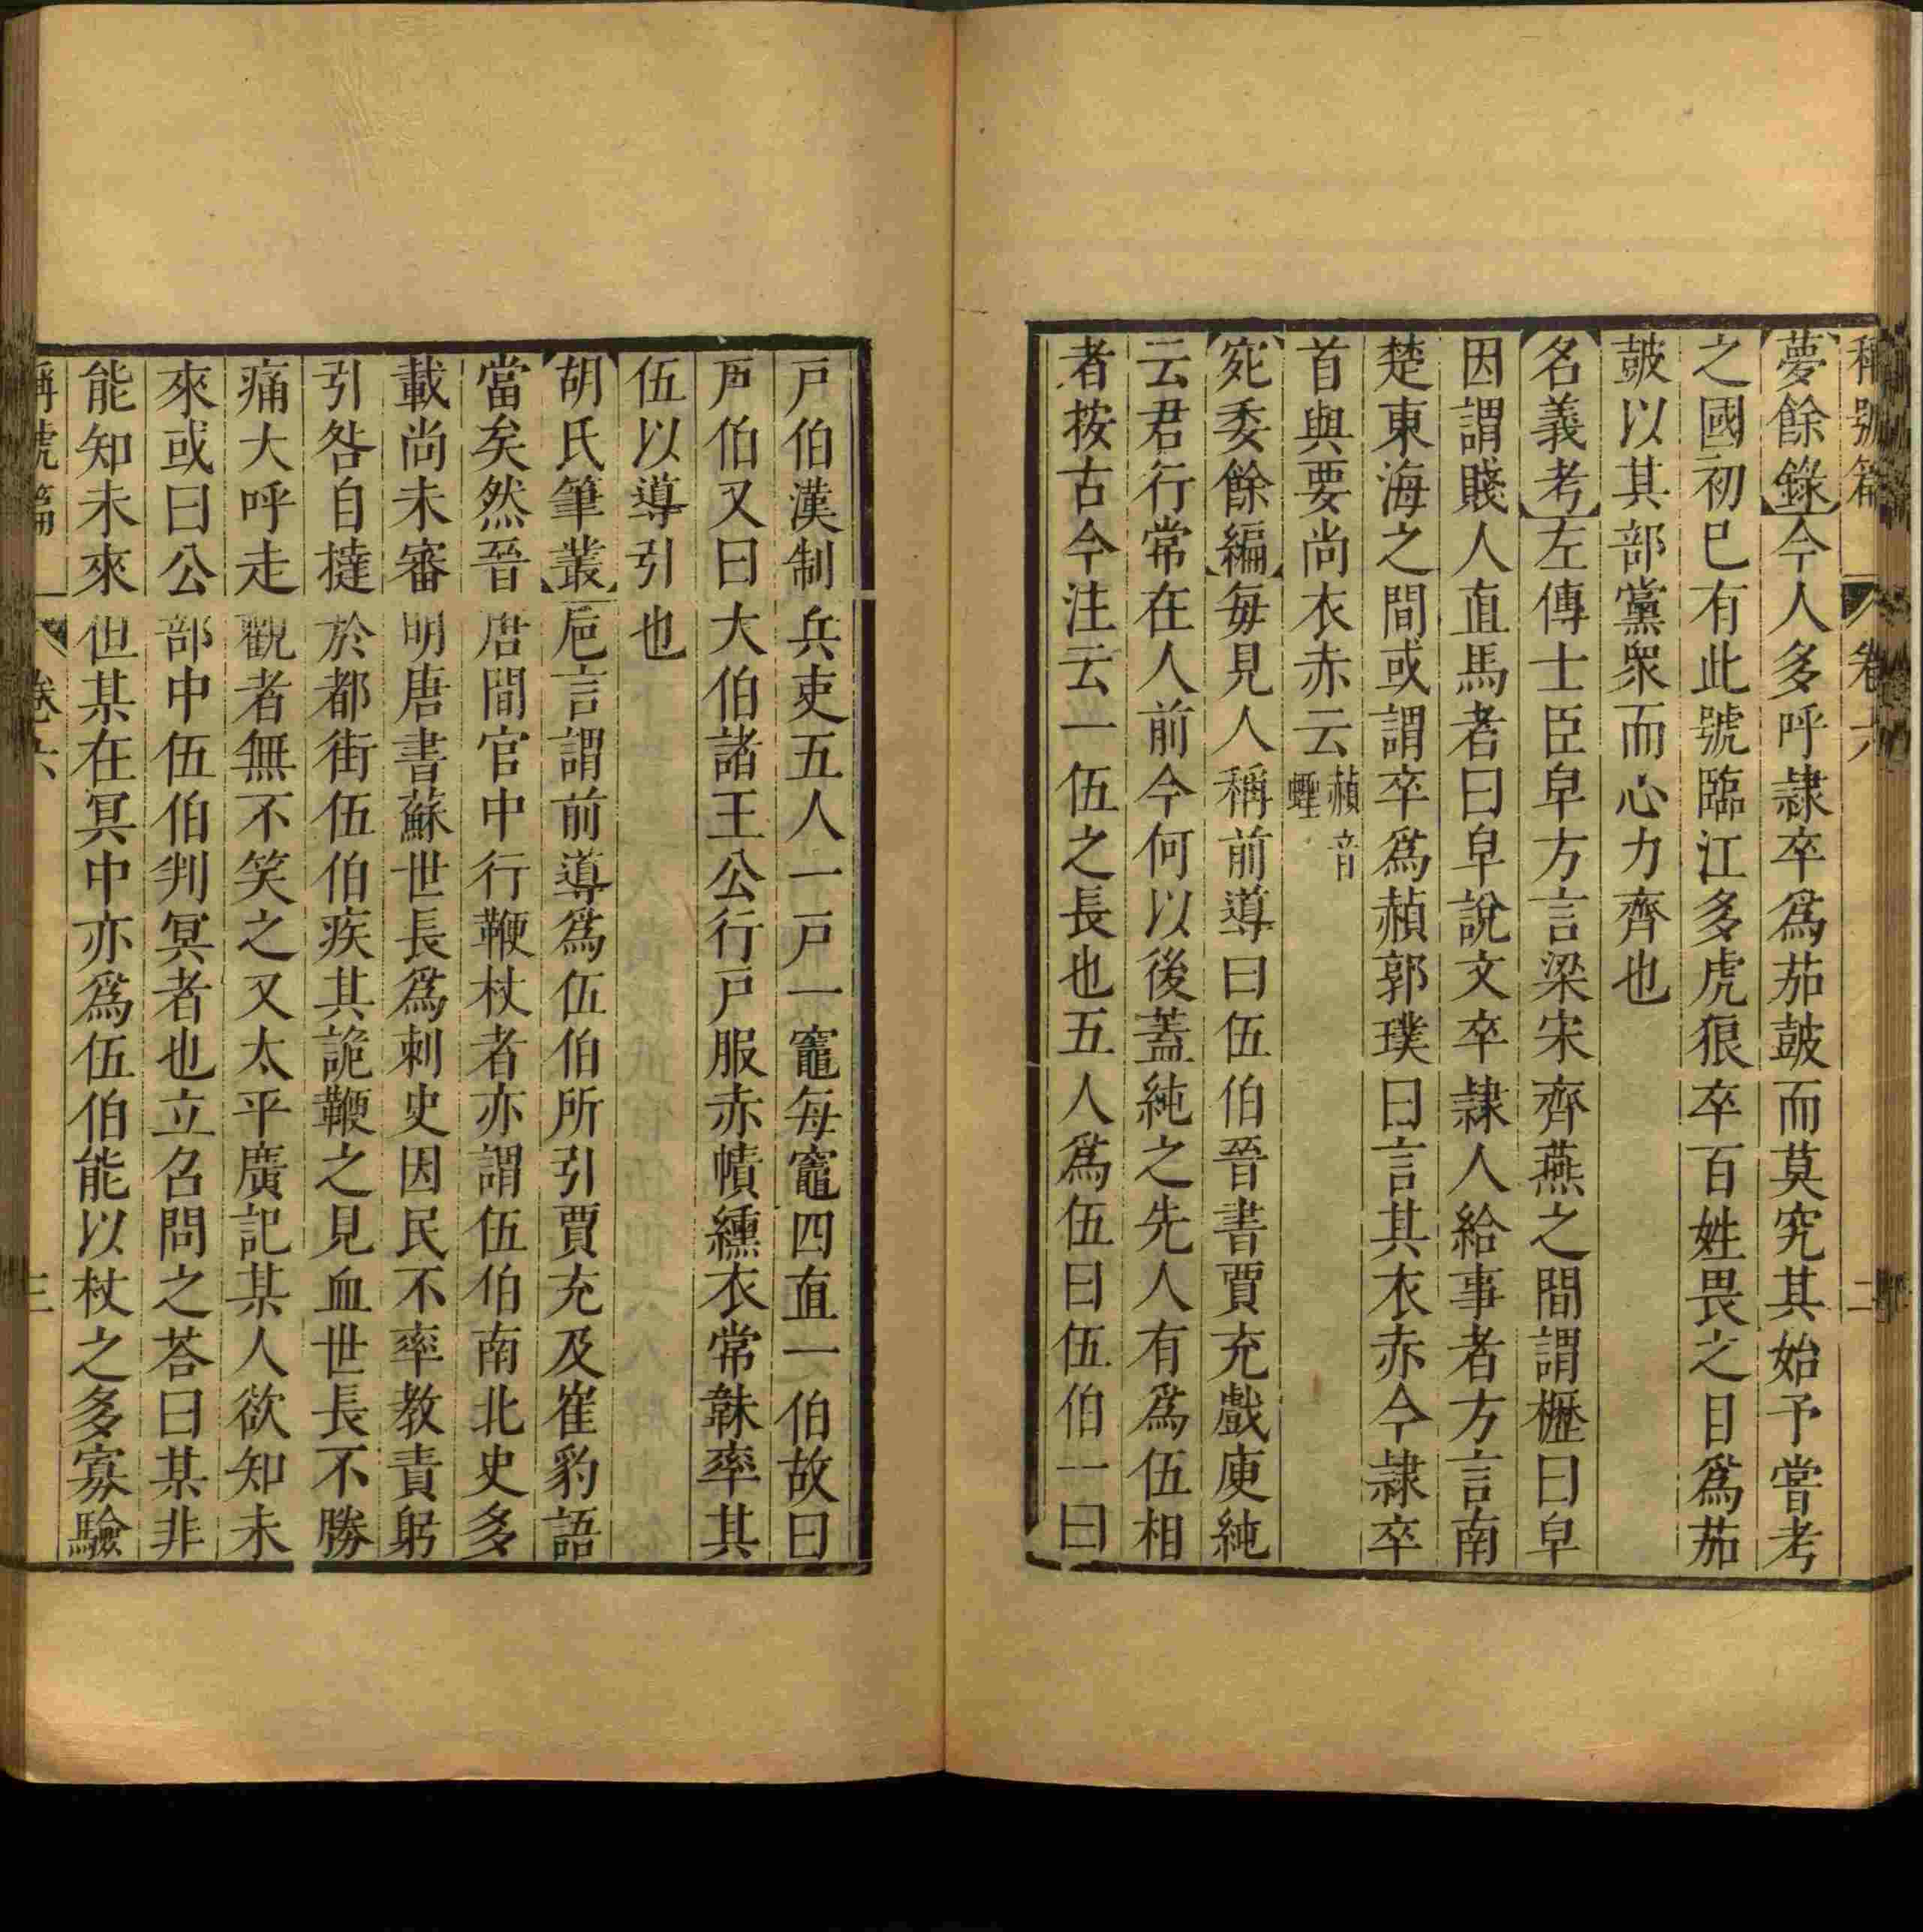 稱號篇 卷六 二
夢餘錄今人多呼隷卒爲茄皷而莫究其始予嘗考
之國初巳有此號臨江多虎狼卒百姓畏之目爲茄
皷以其部黨衆而心力齊也
名義考左傳士臣皁方言梁宋齊燕之間謂櫪曰皁
因謂賤人直馬者曰皁說文卒隷人給事者方言南
楚東海之間或謂卒爲赬郭璞曰言其衣赤今隷卒
首與要尚衣赤云赬音蟶
宛委餘編每見人稱前導曰伍伯晉書賈充戲庾純
云君行常在人前今何以後蓋純之先人有爲伍相
者按古今注云一伍之長也五人爲伍曰伍伯一曰
戸伯漢制兵吏五人一戸一竈每竈四直一伯故曰
戸伯又曰大伯諸王公行戸服赤幘纁衣常韎率其
伍以導引也
胡氏筆叢巵言謂前導爲伍伯所引賈充及崔豹語
當矣然晉唐間官中行鞭杖者亦謂伍伯南北史多
載尚未審明唐書蘇世長爲刺史因民不率教責躬
引咎自撻於都街伍伯疾其詭鞭之見血世長不勝
痛大呼走觀者無不笑之又太平廣記某人欲知未
來或曰公部中伍伯判冥者也立召問之荅曰某非
能知未來但某在冥中亦爲伍伯能以杖之多寡驗
稱號篇 卷六 三